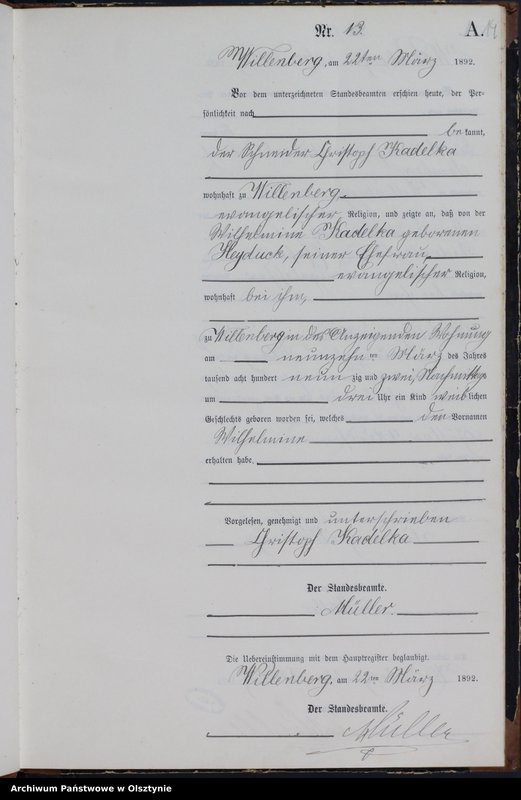 Nr. 13.
A. 14
Willenberg, am 22ten März 1892.
Vor dem unterzeichneten Standesbeamten erschien heute, der Per-
sönlichkeit nach
bekannt,
der Schneider Christoph Kadelka
wohnhaft zu Willenberg.
evangelischer Religion, und zeigte an, daß von der
Wilhelmine Kadelka geborenen
Heyduck, seiner Ehefrau,
evangelischer Religion,
wohnhaft bei ihm,
zu Willenberg in des Anzeigenden Wohnung
am neunzehnten März des Jahres
tausend acht hundert neunzig und zwei, Nachmittags
um drei Uhr ein Kind weiblichen
Geschlechts geboren worden sei, welches den Vornamen
Wilhelmine
erhalten habe.
Vorgelesen, genehmigt und unterschrieben
Christoph Kadelka
Der Standesbeamte.
Müller.
Die Uebereinstimmung mit dem Hauptregister beglaubigt.
Willenberg, am 22ten März 1892.
Der Standesbeamte.
Müller
Archiwum Państwowe w Olsztynie